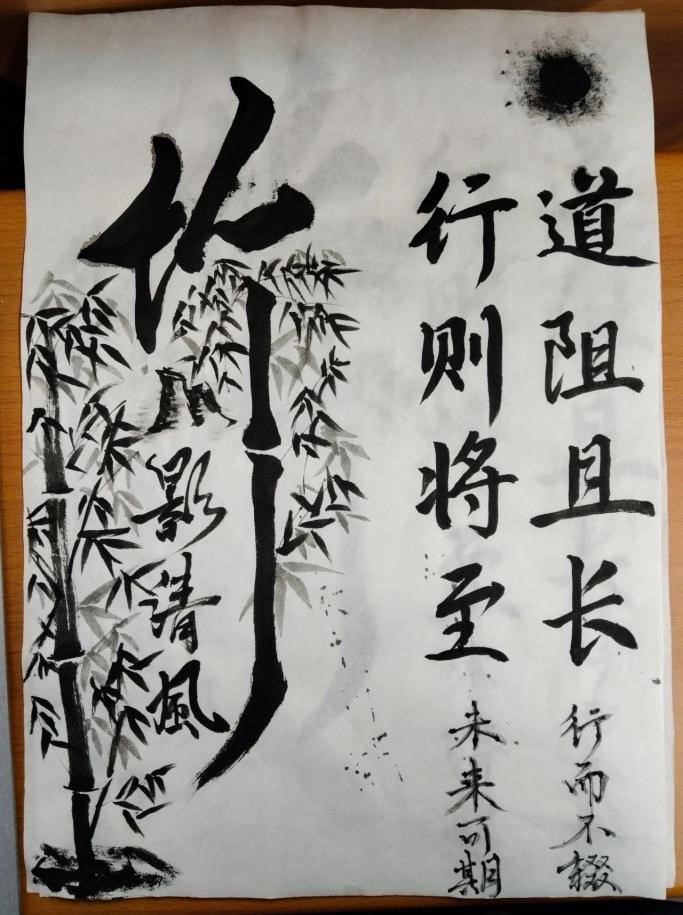 道阻且长
行而不辍
行则将至
未来可期
竹
影清風